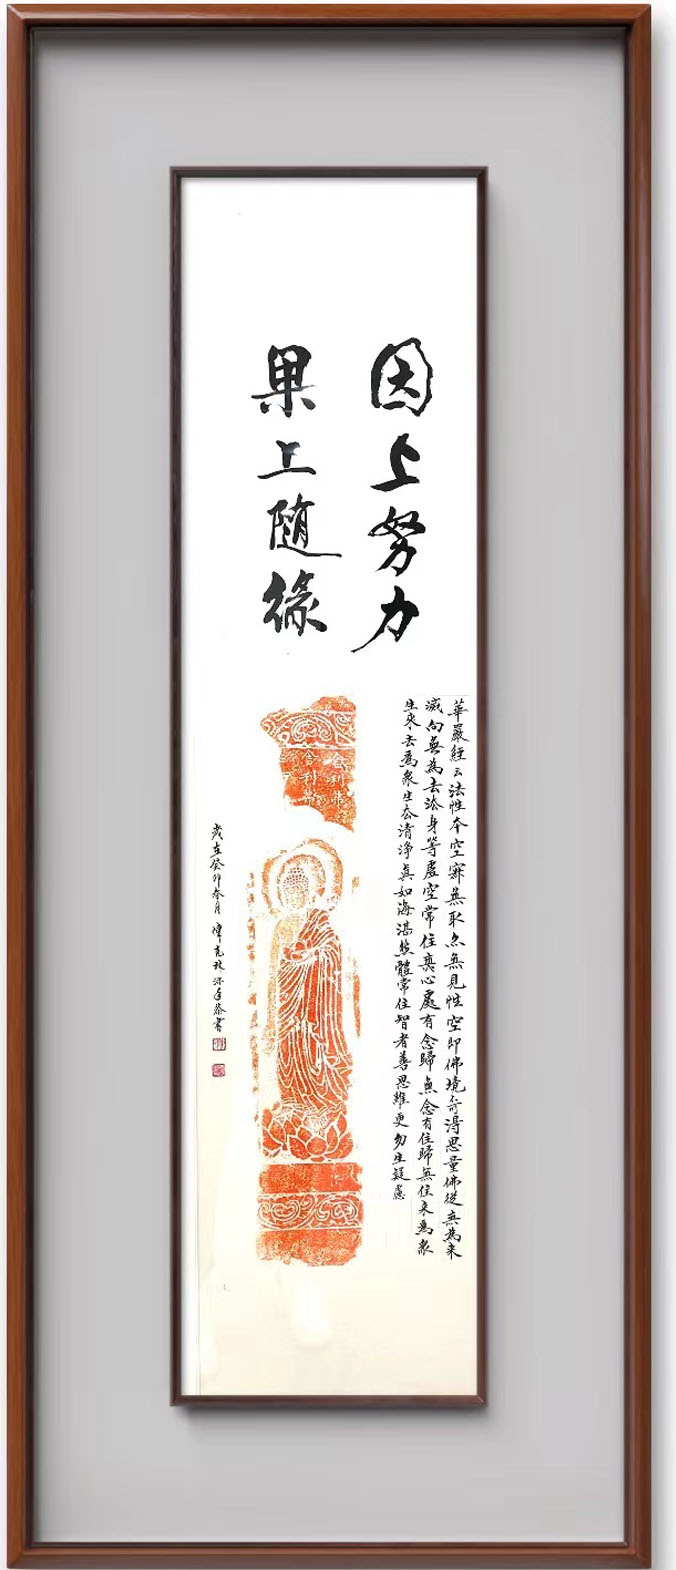 因上努力
果上隨緣
華嚴經云法性本空寂無取亦無見性空即佛境不可得思量佛從無為来
滅向無為去法身等虛空常住無心處有念歸無念有住歸無住来為衆
生来去為衆生去清淨真如海湛然體常住智者善思維更勿生疑慮
舍利弗
舍利弗
歲在癸卯春月
沐手恭書